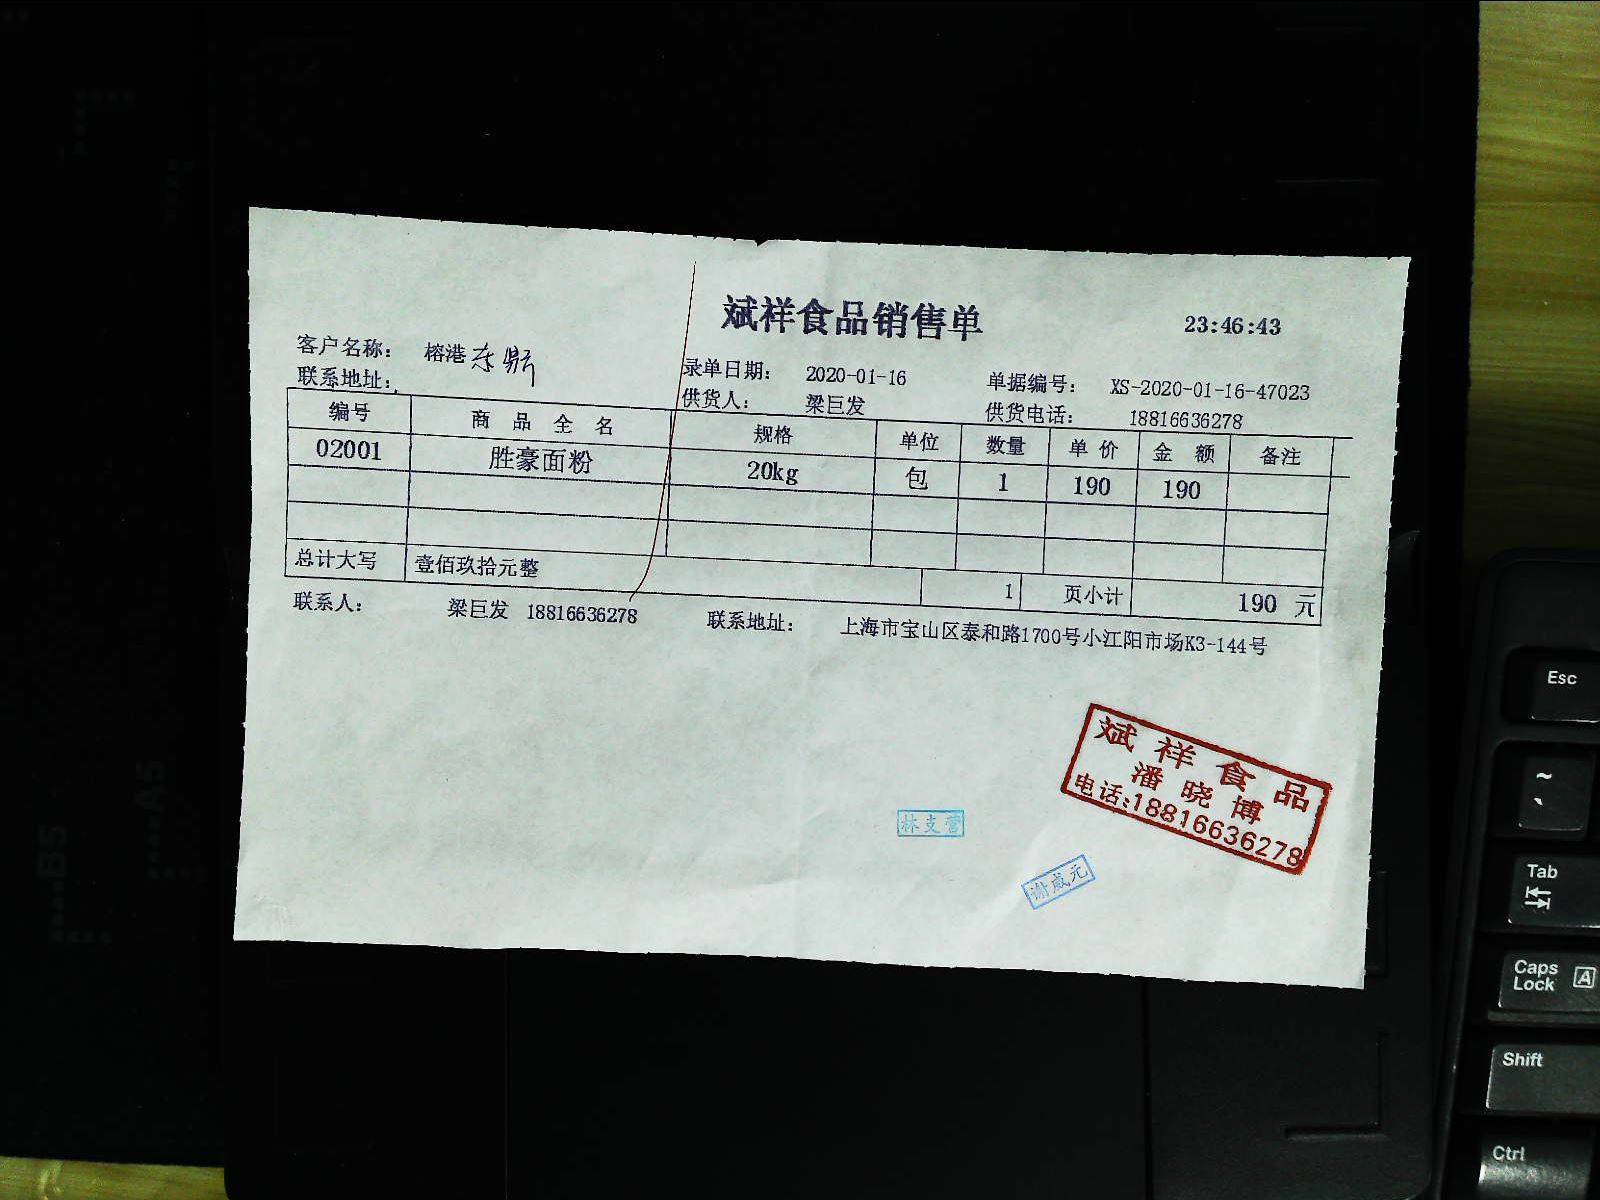 斌祥食品销售单
23:46:43
客户名称: 榕港东鼎
录单日期: 2020-01-16 单据编号: XS-2020-01-16-47023
联系地址:
供货人: 梁巨发 供货电话: 18816636278
编号 商品全名 规格 单位 数量 单价 金额 备注
02001 胜豪面粉 20kg 包 1 190 190
总计大写 壹佰玖拾元整 1 页小计 190 元
联系人: 梁巨发 18816636278 联系地址: 上海市宝山区泰和路1700号小江阳市场K3-144号
斌祥食品
潘晓博
电话:18816636278
林支营
谢威元
Esc
~
`
Tab
Caps
Lock A
Shift
Ctrl
B5
A5